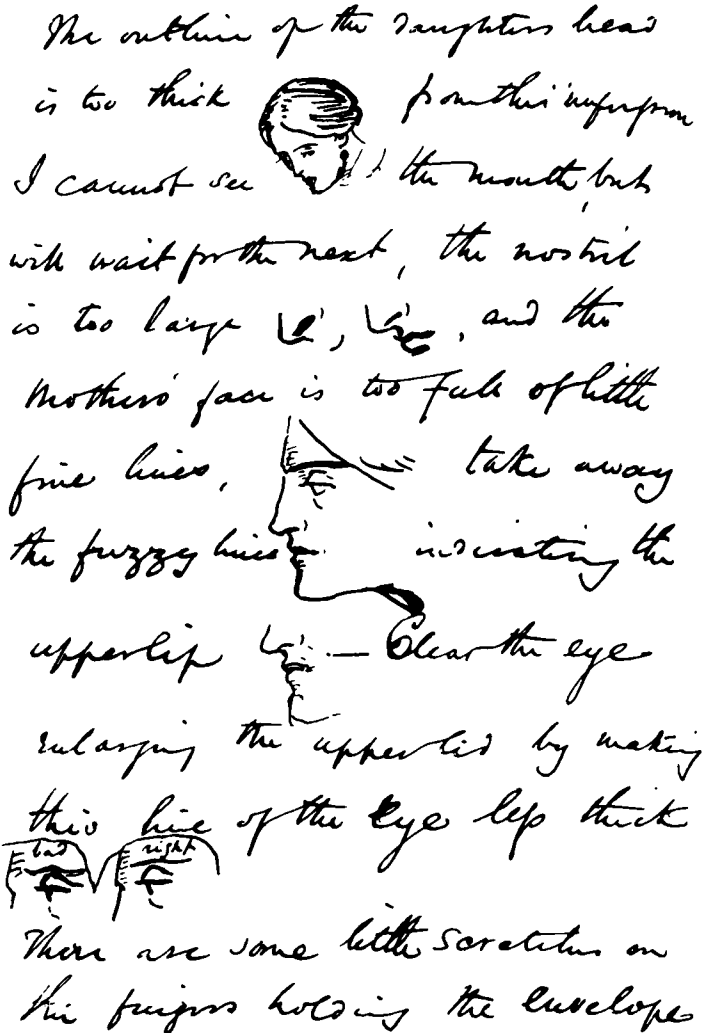 The outline of the daughters head
is too thick from this impression
I cannot see the mouth, but
will wait for the next, the nostril
is too large , , and the
Mothers' face is too full of little
fine lines, take away
the fuzzy lines indicating the
upper lip — Clear the eye
enlarging the upper lid by making
this line of the Eye less thick
bad right
There are some little scratches on
the fingers holding the envelope